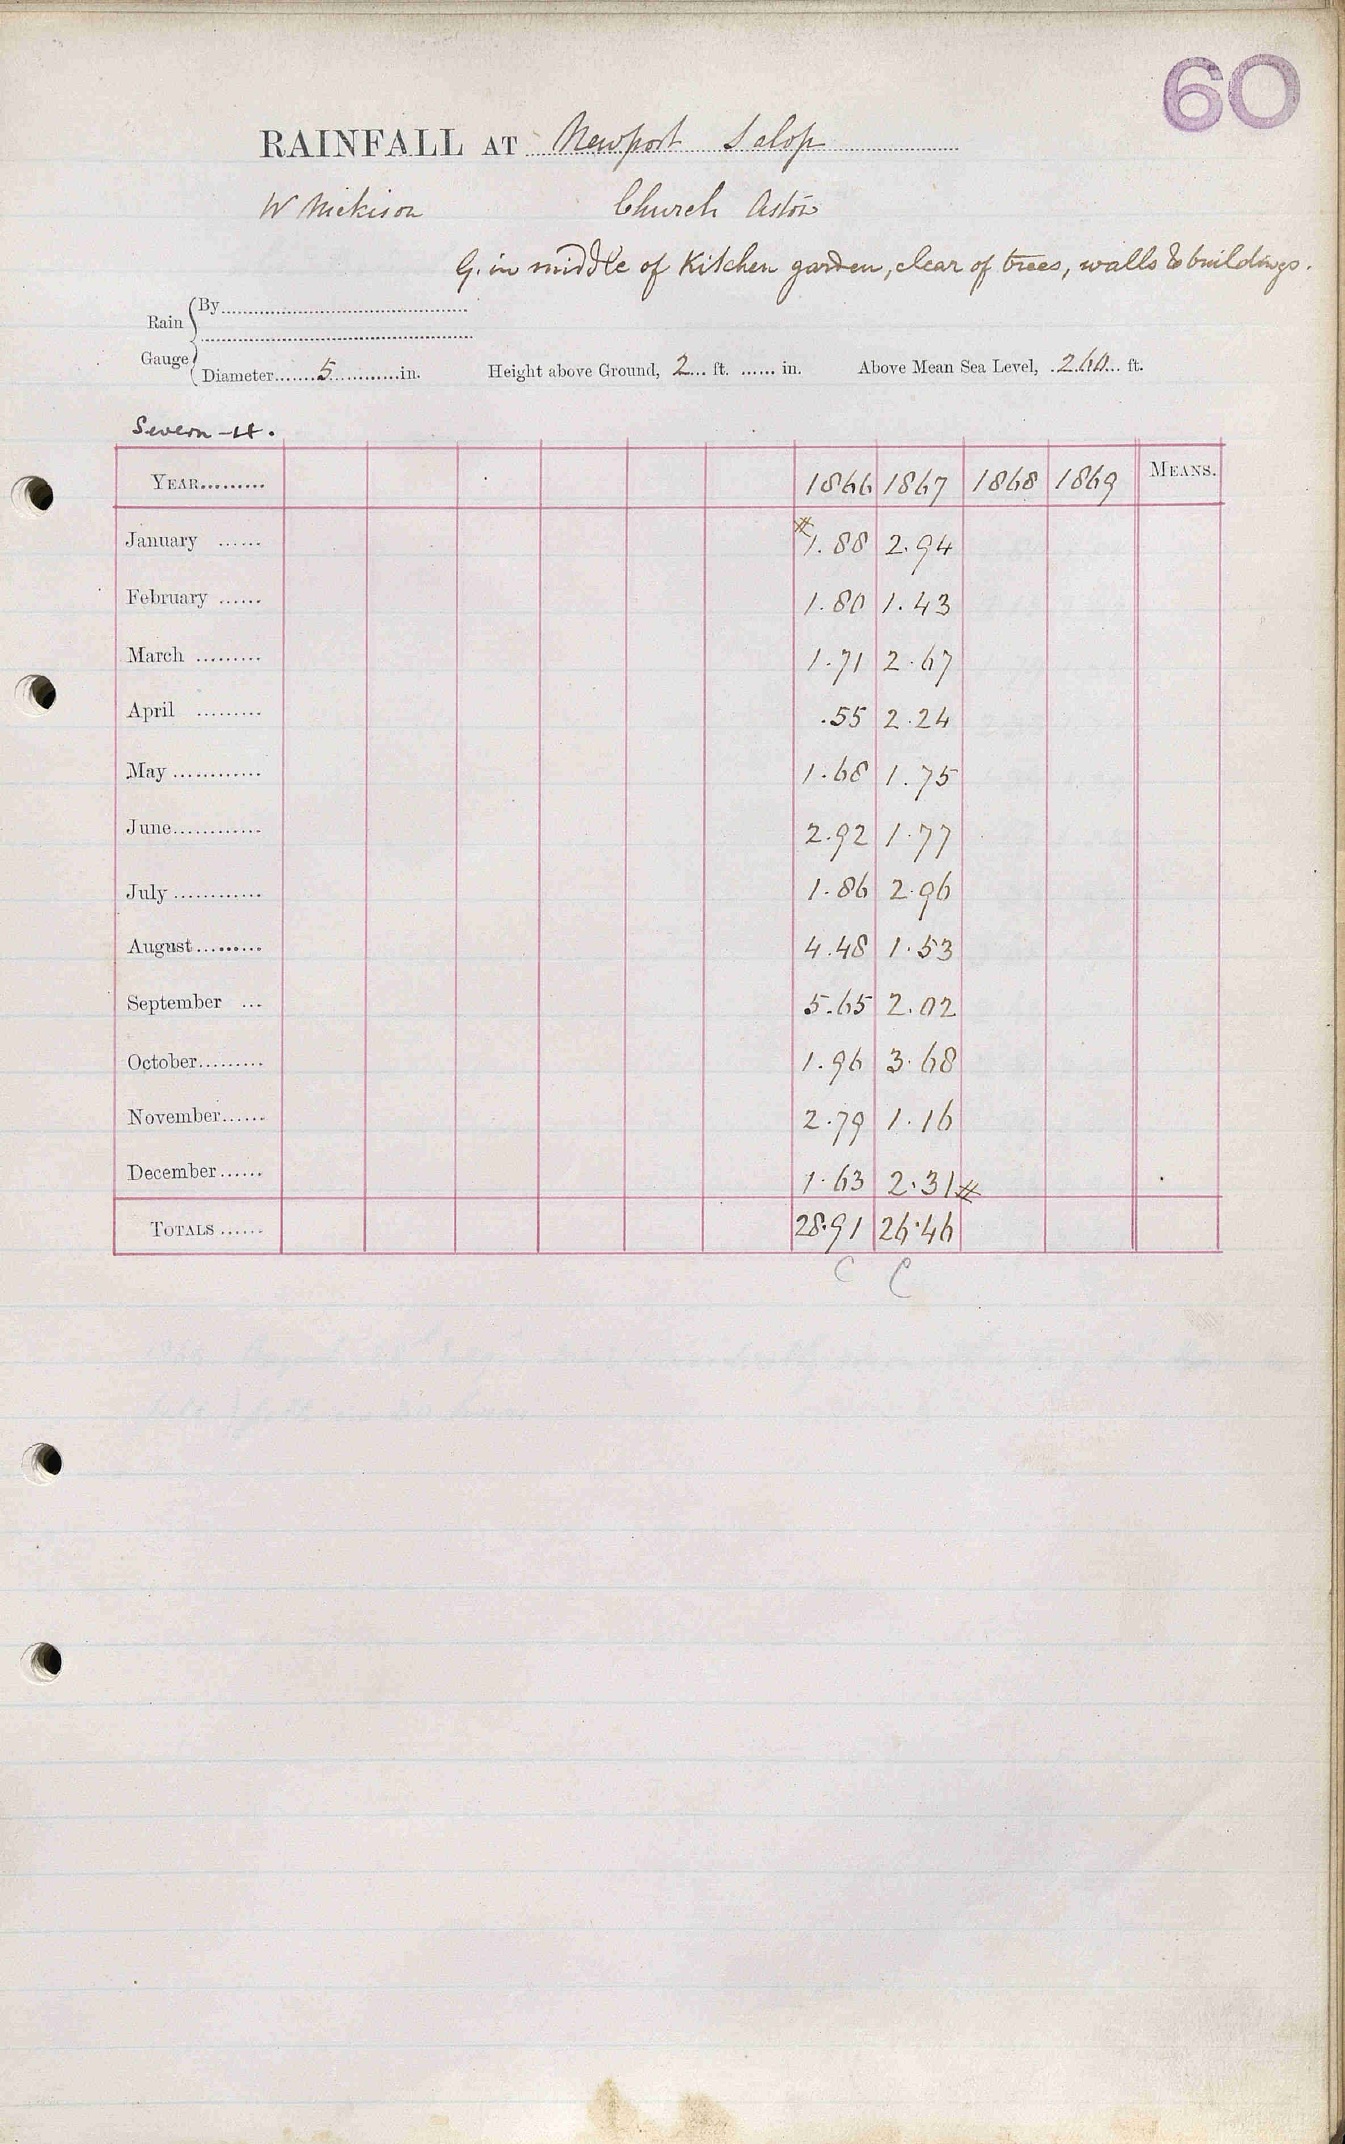 60
RAINFALL AT Newport Salop
W Nickison Church Aston
G. in middle of Kitchen garden, clear of trees, walls & buildings.
Rain Gauge
By
Diameter 5 in. Height above Ground, 2 ft. in. Above Mean Sea Level, 260 ft.
Severn - 4.
YEAR 1866 1867 1868 1869 MEANS.
January #1.88 2.94
February 1.80 1.43
March 1.71 2.67
April .55 2.24
May 1.68 1.75
June 2.92 1.77
July 1.86 2.96
August 4.48 1.53
September 5.65 2.02
October 1.96 3.68
November 2.79 1.16
December 1.63 2.31#
TOTALS 28.91 26.46
C C